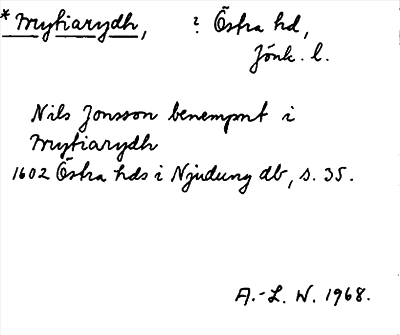 * Mrytiarydh,    ? Östra hd,
Jönk. l.
Nils Jonsson benempnt i
Mrytiarydh
1602 Östra hds i Njudung db, s. 35.
A.-L. W. 1968.